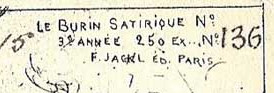 LE BURIN SATIRIQUE Nº
3e ANNÉE 250 EX.. Nº 136
F. JACKL ED. PARIS